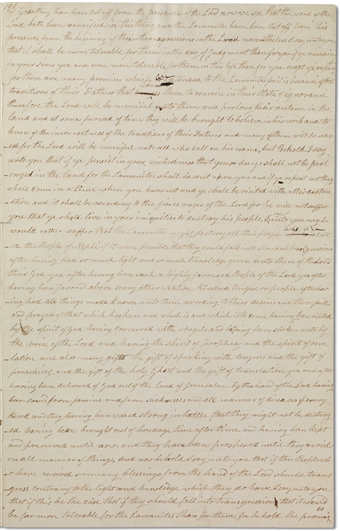 they have been cut off from the presence of the Lord now we see that the word of the Lord
hath been verified in this thing and the Lamanites have been cut off from his
presence from the beginning of their transgressions in the land nevertheless I say unto you
that it shall be more tolerable for them in the day of judgment than for you if ye remain
in your sins yea and even more tolerable for them in this life than for you except ye repent
for there are many promises which are to the Lamanites for it is because of the
traditions of their fathers that them to remain in their state of ignorance
therefore the Lord will be merciful unto them and prolong their existence in the
land and at some period of time they will be brought to believe in his word and to
know of the incorrectness of the traditions of their fathers and many of them will be sav
ed for the Lord will be merciful unto all who call on his name but behold I say
unto you that if ye persist in your wickedness that your days shall not be prol
onged in the land for the Lamanites shall be sent upon you and if ye repent not they
shall come in a time when you know not and ye shall be visited with utter destru
ction and it shall be according to the fierce anger of the Lord for he will not suffer
you that ye shall live in your iniquities to destroy his people I say unto you nay he
would rather suffer that the Lamanites might destroy all this people
the People of Nephi if it were possible that they could fall into sins and transgressions
after having had so much light and so much knowledge given unto them of the Lord
their God yea after having been such a highly favored People of the Lord yea after
having been favored above every other Nation kindred tongue or people after hav
ing had all things made known unto them according to their desires and their faith
and prayers of that which has been and which is and which is to come having been visited
by the spirit of God having conversed with Angels and having been spoken unto by
the voice of the Lord and having the spirit of prophecy and the spirit of reve
lation and also many gifts the gift of speaking with tongues and the gift of
preaching and the gift of the holy Ghost and the gift of translation yea and after
having been delivered of God out of the land of Jerusalem by the hand of the Lord having
been saved from famine and from sickness and all manner of diseases of every
kind and they having been waxed strong in battle that they might not be destroy
ed having been brought out of bondage time after time and having been kept
and preserved until now and they have been prospered until they are rich
in all manner of things and now behold I say unto you that if this People wh
o have received so many blessings from the hand of the Lord should trans
gress contrary to the light and knowledge which they do have I say unto you
that if this be the case that if they should fall into transgression that it would
be far more tolerable for the Lamanites than for them for behold the promis